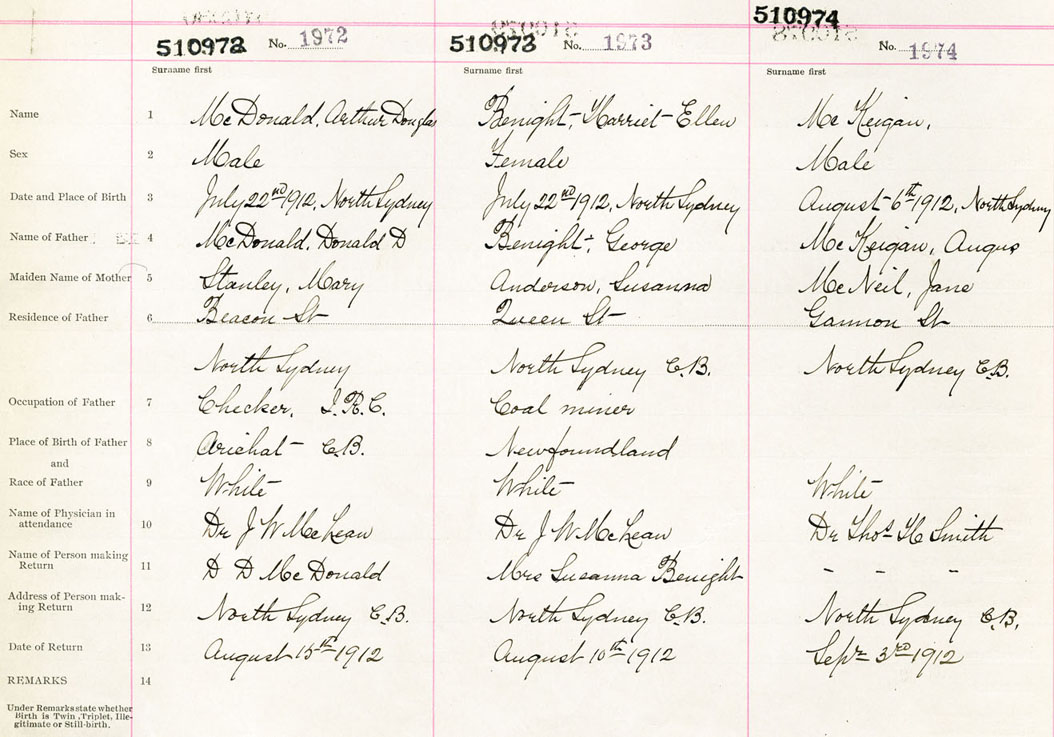 510972 No. 1972 510973 No. 1973 510974 No. 1974
Surname first Surname first Surname first
Name 1 McDonald, Arthur Douglas Benight, Harriet Ellen McKeigan,
Sex 2 Male Female Male
Date and Place of Birth 3 July 22nd 1912, North Sydney July 22nd 1912, North Sydney August 6th 1912, North Sydney
Name of Father 4 McDonald, Donald D Benight, George McKeigan, Angus
Maiden Name of Mother 5 Stanley, Mary Anderson, Susanna McNeil, Jane
Residence of Father 6 Beacon St Queen St Gannon St
North Sydney North Sydney C.B. North Sydney C.B.
Occupation of Father 7 Checker, I.R.C. Coal miner
Place of Birth of Father 8 Arichat C.B. Newfoundland
and
Race of Father 9 White White White
Name of Physician in
attendance 10 Dr J W McLean Dr J W McLean Dr Thos H Smith
Name of Person making
Return 11 D D McDonald Mrs Susanna Benight - - -
Address of Person mak-
ing Return 12 North Sydney C.B. North Sydney C.B. North Sydney C.B.
Date of Return 13 August 15th 1912 August 10th 1912 Sepr 3rd 1912
REMARKS 14
Under Remarks state whether
Birth is Twin, Triplet, Ille-
gitimate or Still-birth.